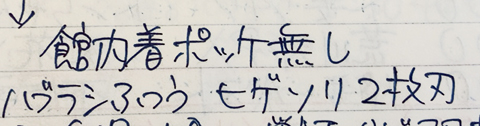 ↓
館内着ポッケ無し
ハブラシふつう ヒゲソリ2枚刃